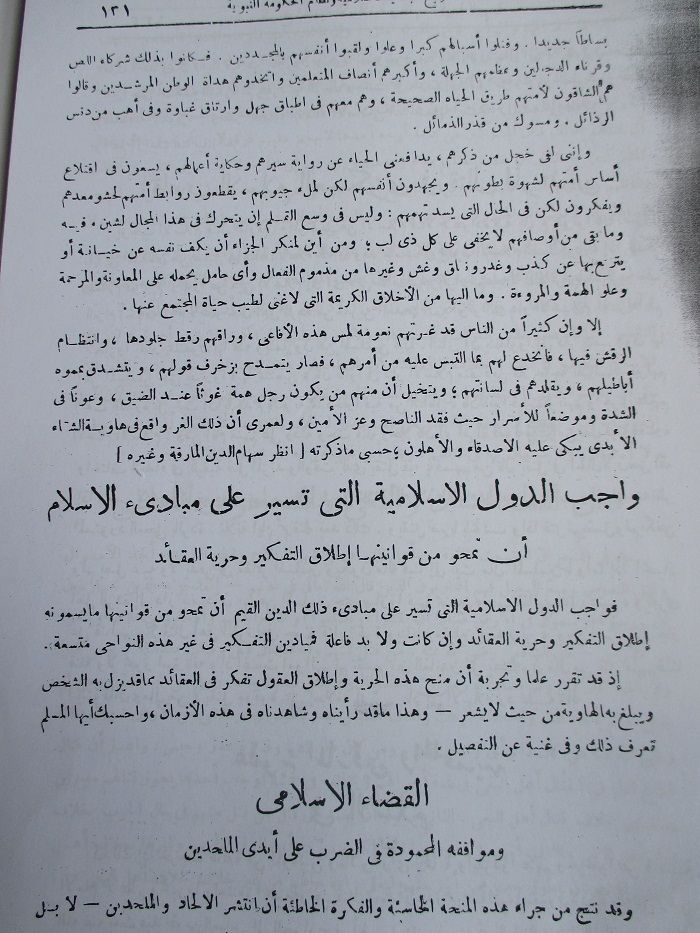 ١٢١ ونظام الحكومة النبوية
بساطاً جديدا . وفتلوا أسبالهم كبرا وعلوا ولقبوا أنفسهم بالمجددين . فكانوا بذلك شركاء اللص
وقرناء الدجالين وعظامهم الجهلة ، وأكبرهم أنصاف المتعلمين واتخذوهم هداة الوطن المرشدين وقالوا
هم الشاقون لأمتهم طريق الحياه الصحيحة ، وهم معهم فى اطباق جهل وارتاق غباوة وفى أهب من دنس
الرذائل . ومسوك من قذر الذمائل .
وإننى لفى خجل من ذكرهم ، يدافعنى الحياء عن رواية سيرهم وحكاية أعمالهم ، يسعون فى اقتلاع
أساس أمتهم لشهوة بطونهم . ويجهدون أنفسهم لكن لملء جيوبهم ، يقطعون روابط أمتهم لحشو معدهم
ويفكرون لكن فى الحال التى يسد نهمهم : وليس فى وسع القلم إن يتحرك فى هذا المجال لشىء وبه
وما بقى من أوصافهم لا يخفى على كل ذى لب ؛ ومن أين لمنكر الجزاء أن يكف نفسه عن خيانة أو
يترفع بها عن كذب وغدر ونفاق وغش وغيرها من مذموم الفعال وأى حامل يحمله على المعاونة والمرحمة
وعلو الهمة والمروءة . وما اليها من الأخلاق الكريمة التى لاغنى لطيب حياة المجتمع عنها .
إلا وإن كثيراً من الناس قد غرتهم نعومة لمس هذه الأفاعى ، وراقهم رقط جلودها ، وانتظام
الرقش فيها ، فانخدع لهم بما التبس عليه من أمرهم ، فصار يتمدح بزخرف قولهم ، ويتشدق بمموه
أباطيلهم ، ويقلدهم فى لسانتهم ؛ ويتخيل أن منهم من يكون رجل همة غوثاً عند الضيق ، وعونا فى
الشدة وموضعاً للأسرار حيث فقد الناصح وعز الأمين ، ولعمرى أن ذلك الغر واقع فى هاوية الشقاء
الأبدى يبكى عليه الاصدقاء والأهلون ؛ حسبى ماذكرته [ انظر سهام الدين المارقة وغيره ]
واجب الدول الاسلامية التى تسير على مبادىء الاسلام
أن تمحو من قوانينها إطلاق التفكير وحرية العقائد
فواجب الدول الاسلامية التى تسير على مبادىء ذلك الدين القيم أن تمحو من قوانينها مايسمونه
إطلاق التفكير وحرية العقائد وإن كانت ولا بد فاعلة فميادين التفكير فى غير هذه النواحى متسعة .
إذ قد تقرر علما وتجربة أن منح هذه الحرية وإطلاق العقول تفكر فى العقائد بما قد يزل به الشخص
ويبلغ به الهاوية من حيث لا يشعر — وهذا ماقد رأيناه وشاهدناه فى هذه الأزمان ، واحسبك أيها المسلم
تعرف ذلك وفى غنية عن التفصيل .
القضاء الاسلامى
ومواقفه المحمودة فى الضرب على أيدى الملحدين
وقد نتج من جراء هذه المنحة الخاسئة والفكرة الخاطئة أن انتشر الالحاد والملحدين — لا بل